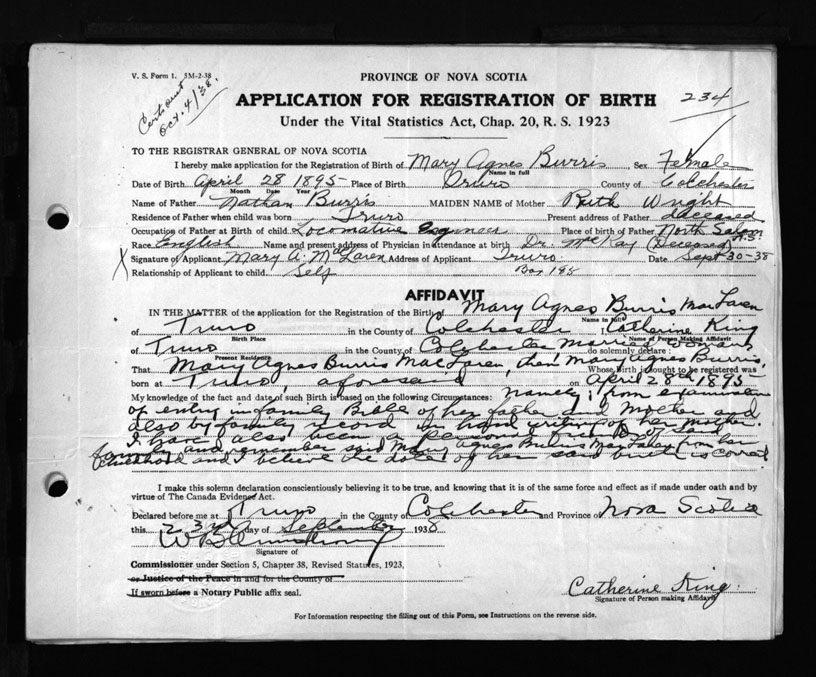 V. S. Form 1. 5M-2-38
Oct. 4/38.
234
PROVINCE OF NOVA SCOTIA
APPLICATION FOR REGISTRATION OF BIRTH
Under the Vital Statistics Act, Chap. 20, R. S. 1923
TO THE REGISTRAR GENERAL OF NOVA SCOTIA
I hereby make application for the Registration of Birth of Mary Agnes Burris Sex Female
Name in full
Date of Birth April 28 1895 Place of Birth Truro County of Colchester
Month Date Year
Name of Father Nathan Burris MAIDEN NAME of Mother Ruth Wright
Residence of Father when child was born Truro Present address of Father deceased
Occupation of Father at Birth of child Locomotive Engineer Place of Birth of Father North Salem N.S.
Race English Name and present address of Physician in attendance at birth Dr. McKay (Deceased)
X Signature of Applicant Mary A. McLaren Address of Applicant Truro Date Sept 30-38
Relationship of Applicant to child Self Box 195
AFFIDAVIT
IN THE MATTER of the application for the Registration of the Birth of Mary Agnes Burris MacLaren
Name in full
of Truro in the County of Colchester, Catherine King
Birth Place Name of Person Making Affidavit
of Truro in the County of Colchester married woman do solemnly declare:
Present Residence
That Mary Agnes Burris MacLaren, then Mary Agnes Burris, Whose Birth is sought to be registered was
born at Truro, aforesaid on April 28th 1895
My knowledge of the fact and date of such Birth is based on the following Circumstances: Namely: from examination
of entry in family Bible of her father and Mother and
also by family record in hand writing of her mother.
I have also been a personal friend of said
family and remember said Mary Agnes Burris MacLaren from her
childhood and I believe the date of her said birth is correct
I make this solemn declaration conscientiously believing it to be true, and knowing that it is of the same force and effect as if made under oath and by
virtue of The Canada Evidence Act.
Declared before me at Truro in the County of Colchester and Province of Nova Scotia
this 23rd day of September 1938
Signature of
Commissioner under Section 5, Chapter 38, Revised Statutes, 1923,
or Justice of the Peace in and for the County of
If sworn before a Notary Public affix seal.
Catherine King
Signature of Person making Affidavit
For Information respecting the filling out of this Form, see Instructions on the reverse side.